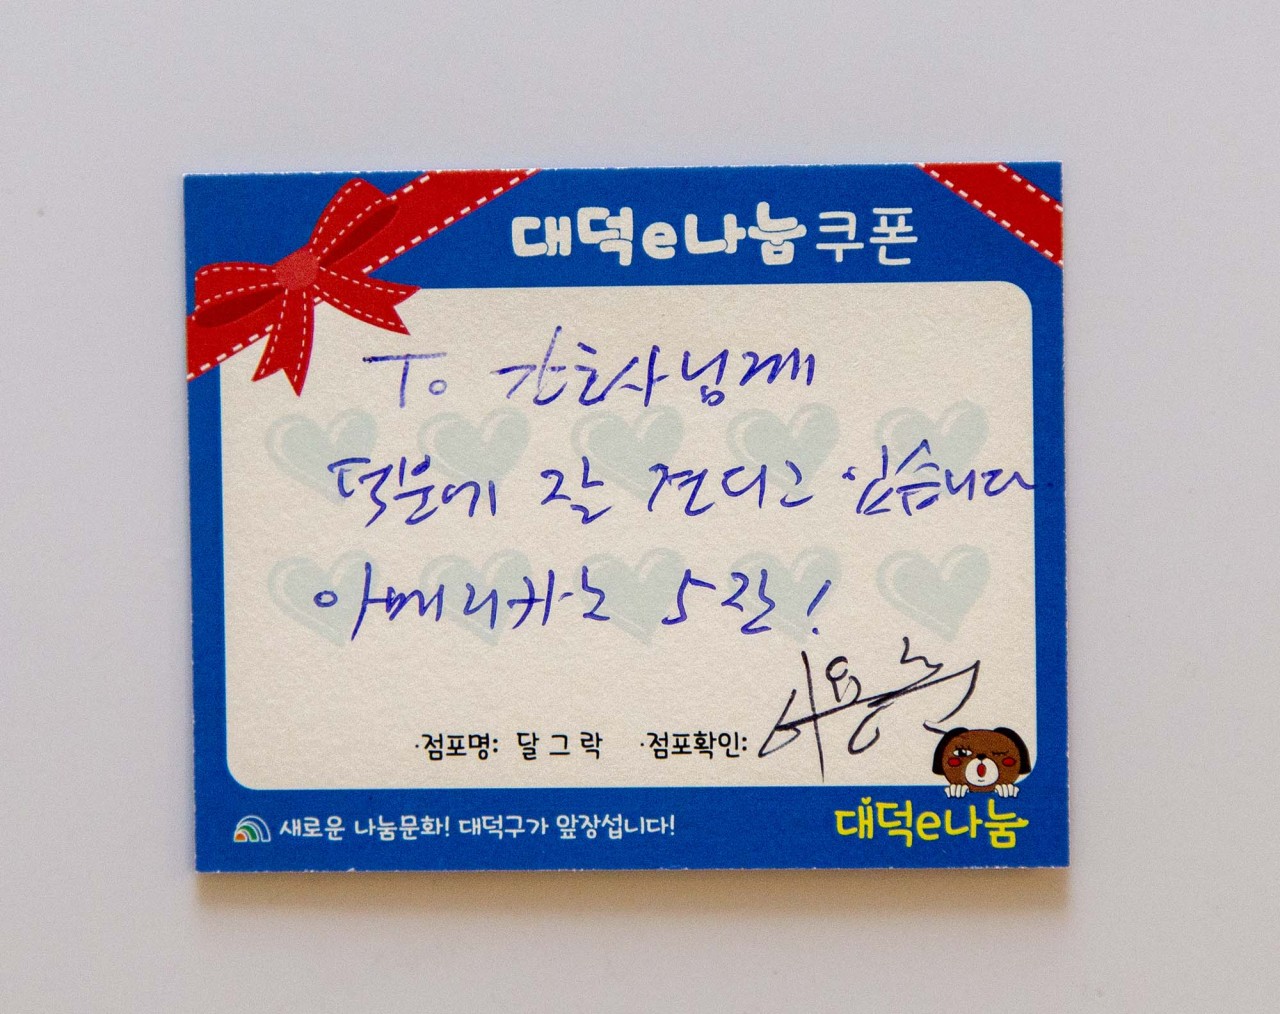 대덕e나눔쿠폰
To 간호사님께
덕분에 잘 견디고 있습니다
아메리카노 5잔!
·점포명: 달그락 ·점포확인:
대덕e나눔
새로운 나눔문화! 대덕구가 앞장섭니다!